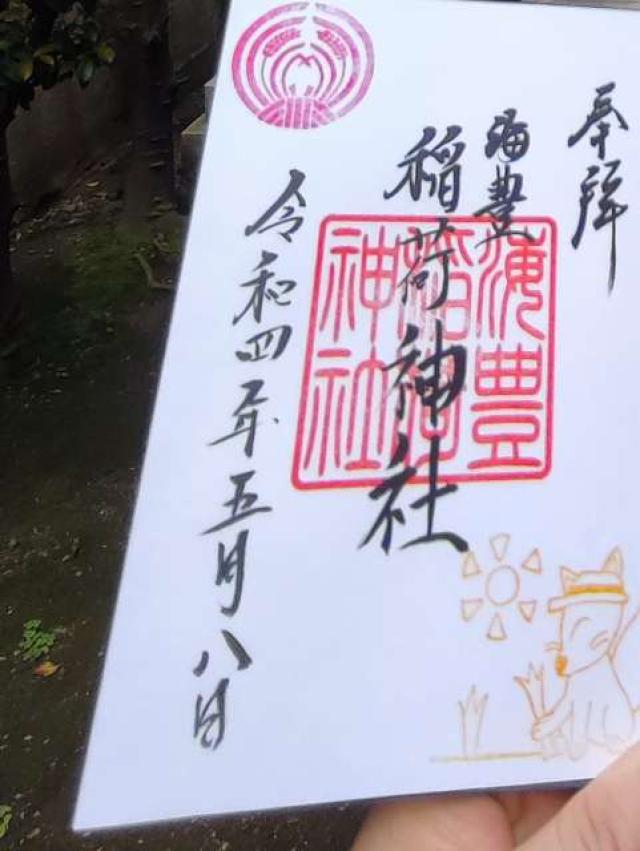 奉拝
海豊
稲荷神社
海豊
稲荷
神社
令和四年五月八日